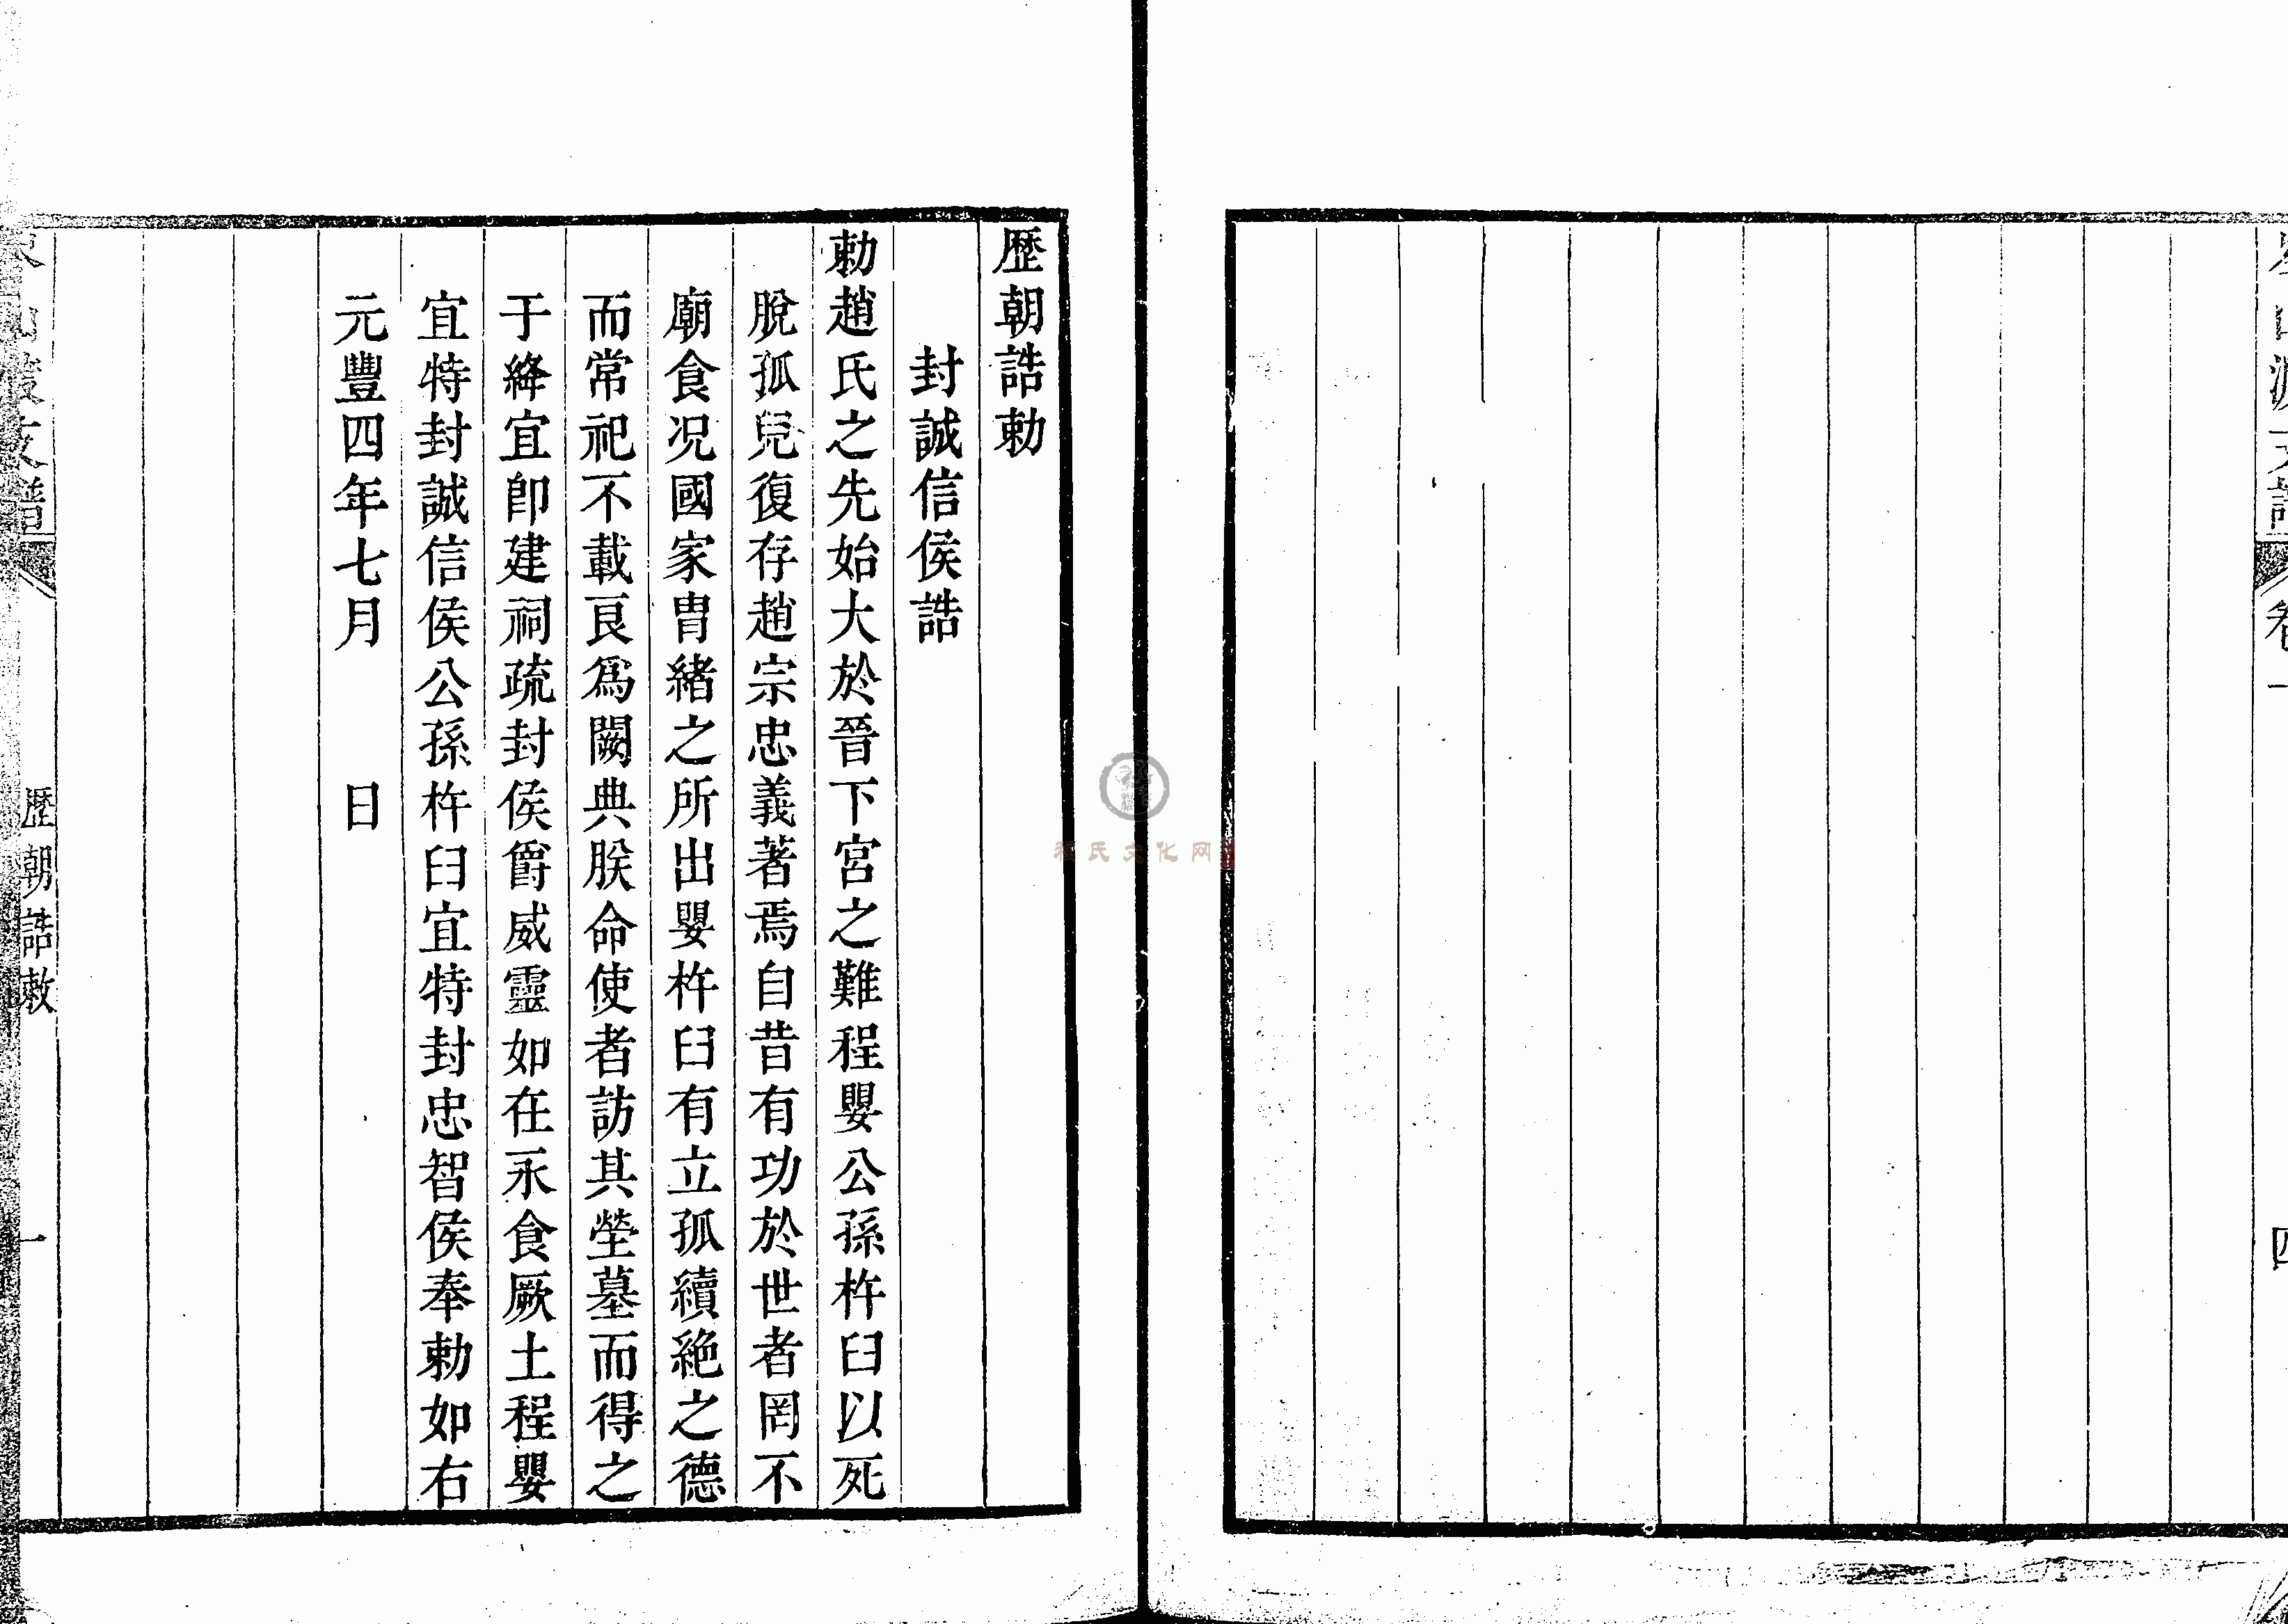 卷一
四
歷朝誥勅
封誠信侯誥
勅趙氏之先始大於晉下宮之難程嬰公孫杵臼以死
脫孤兒復存趙宗忠義著焉自昔有功於世者罔不
廟食况國家胄緒之所出嬰杵臼有立孤續絶之德
而常祀不載良爲闕典朕命使者訪其塋墓而得之
于絳宜卽建祠疏封侯爵威靈如在永食厥土程嬰
宜特封誠信侯公孫杵臼宜特封忠智侯奉勅如右
元豐四年七月　　日
歷朝誥敕
一
程氏文化网